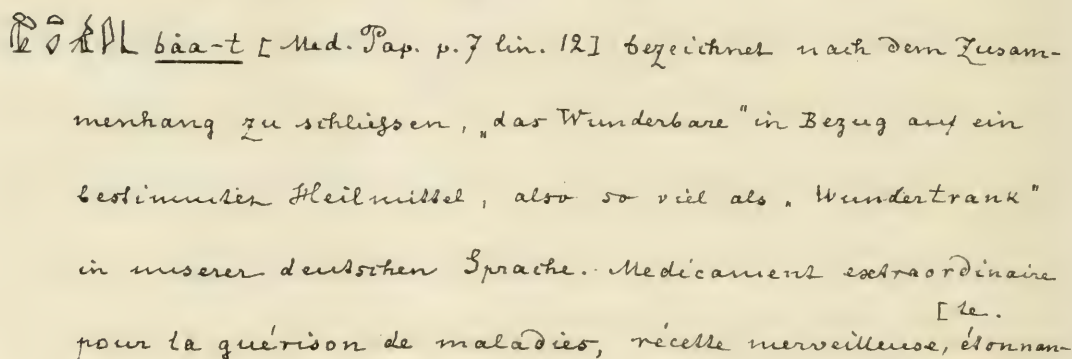 båa-t [Med. Pap. p. 7 lin. 12] bezeichnet nach dem Zusam-
menhang zu schließen, „das Wunderbare" in Bezug auf ein
bestimmtes Heilmittel, also so viel als „Wundertrank"
in unserer deutschen Sprache. Medicament extraordinaire
pour la guérison de maladies, récette merveilleuse, étonnan-
[te.